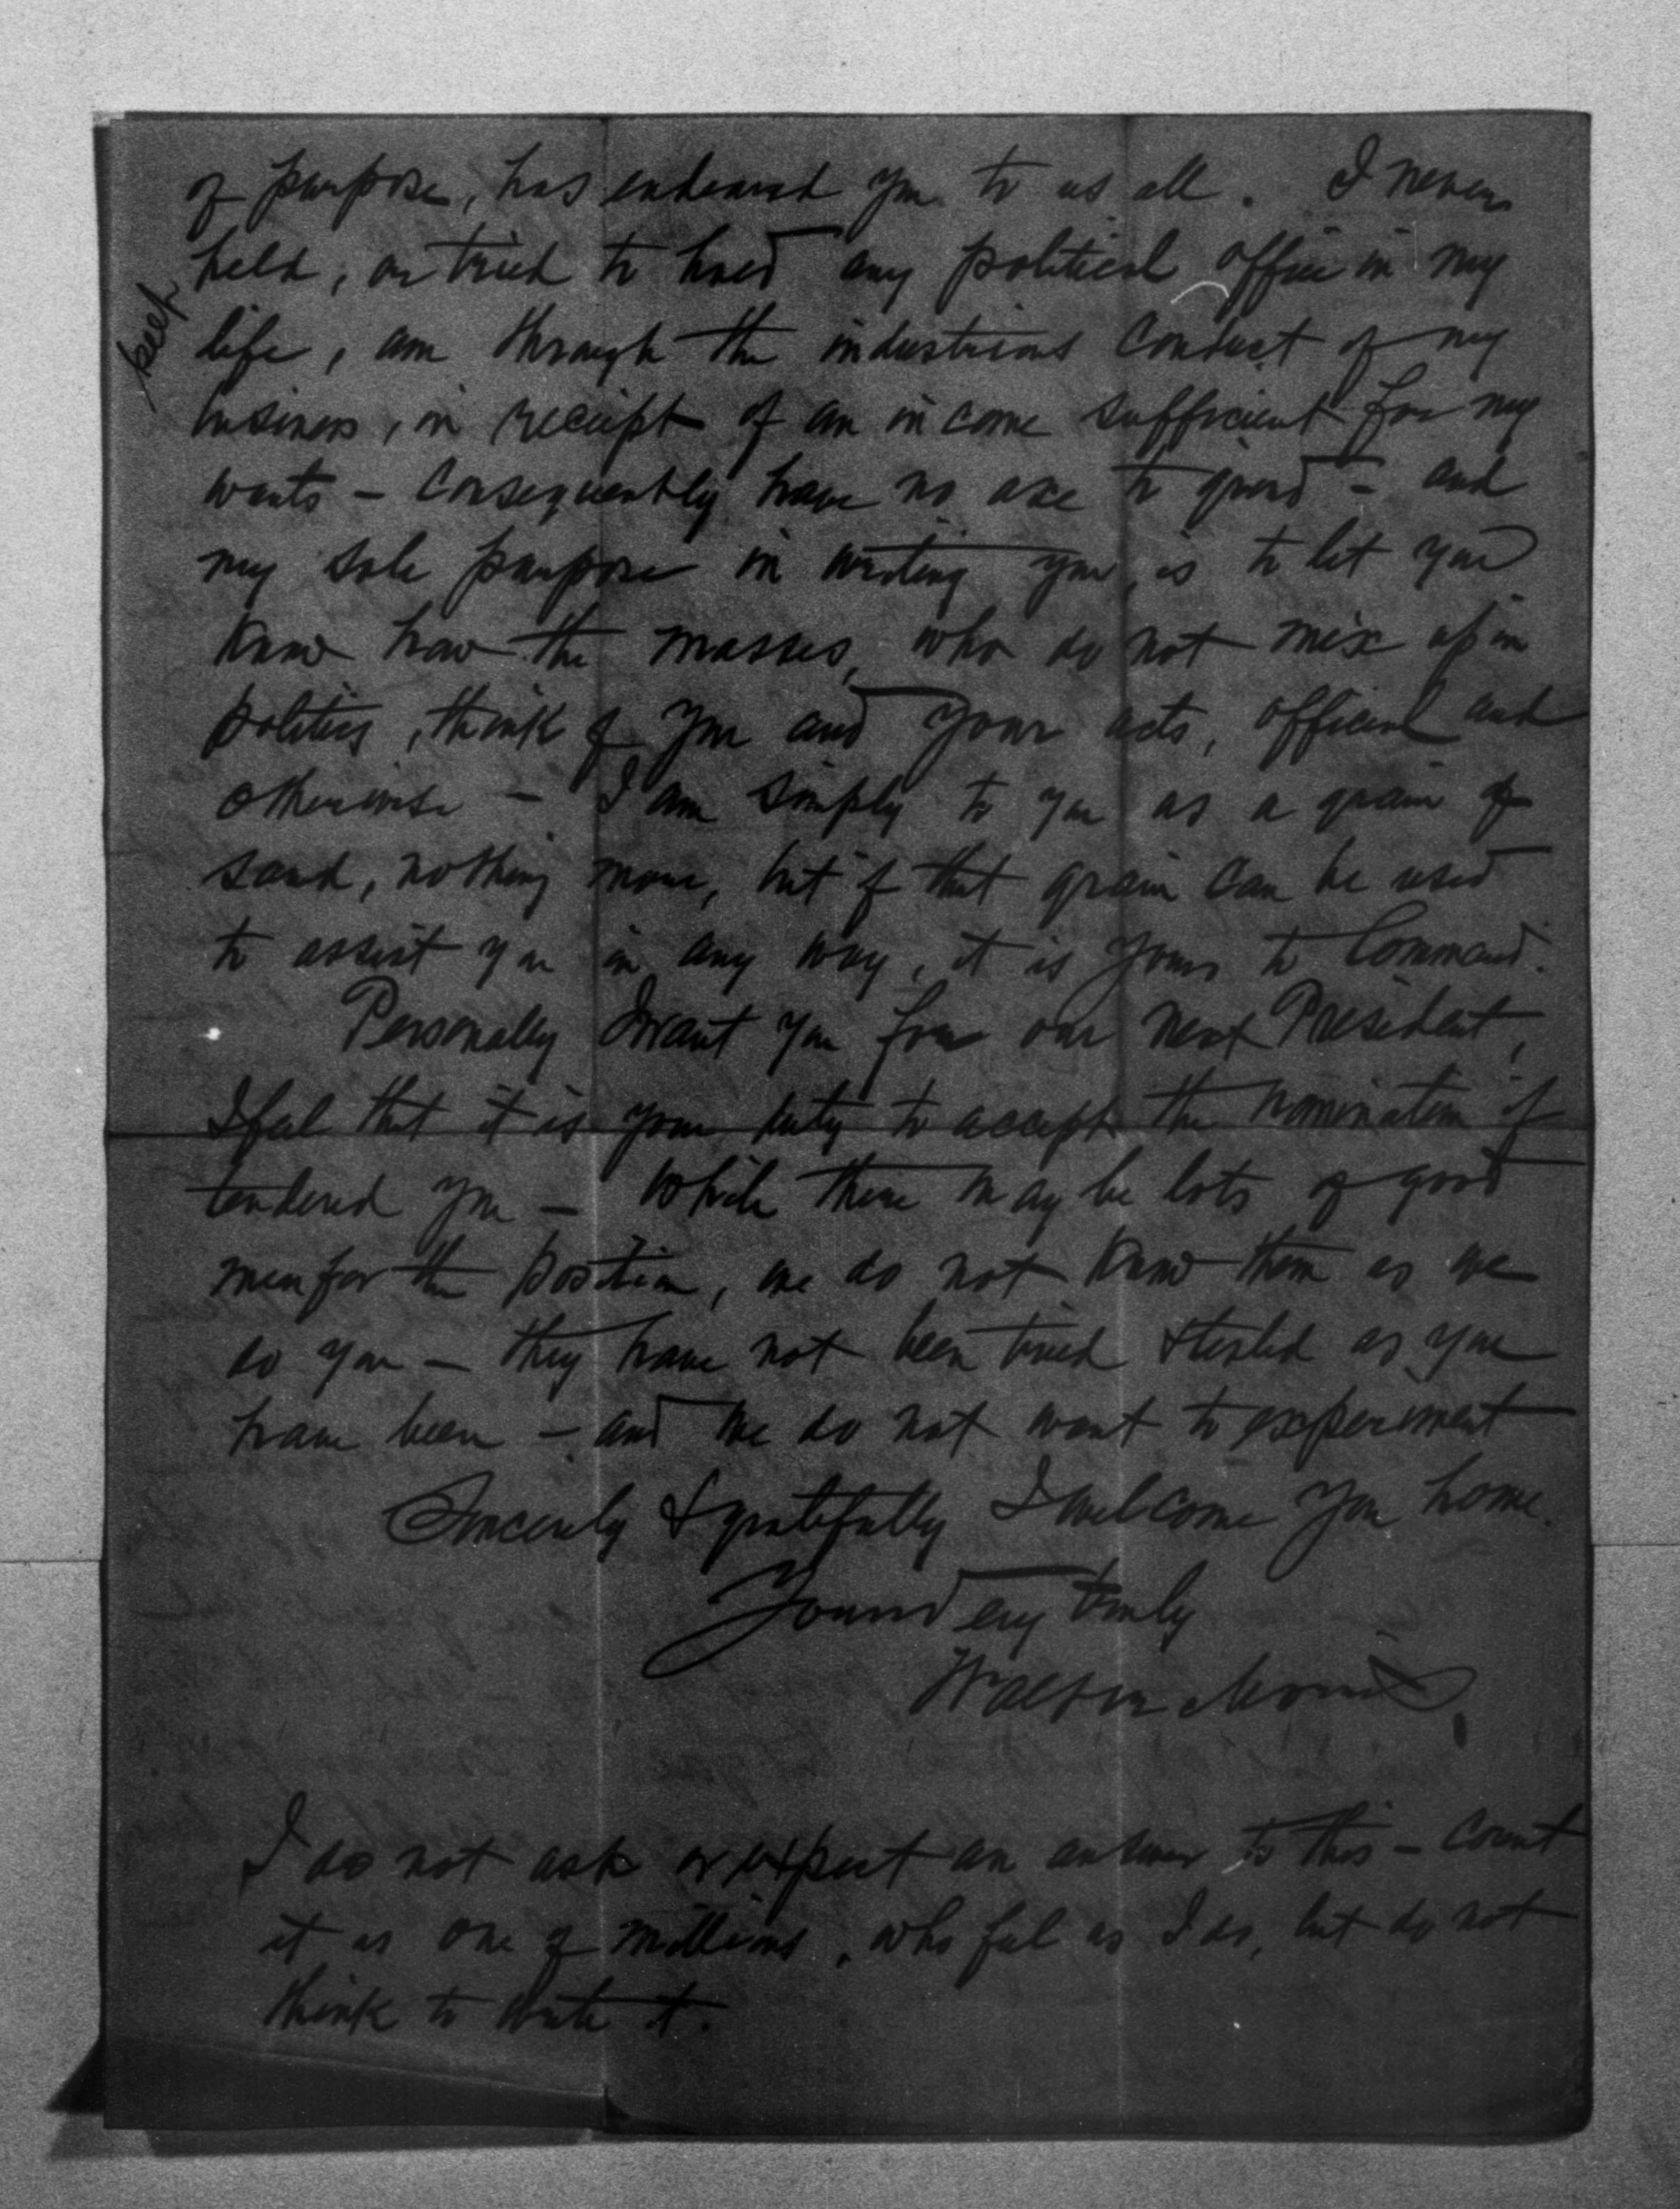 of purpose, has endeared you to us all. I never
held, or tried to hold any political office in my
keep
life, am through the industrious conduct of my
business, in receipt of an income sufficient for my
wants – consequently have no axe to grind – and
my sole purpose in writing you, is to let you
know how the masses, who do not mix up in
politics, think of you and your acts, official and
otherwise – I am simply to you as a grain of
sand, nothing more, but if that grain can be used
to assist you in any way, it is yours to command.
Personally I want you for our next President,
I feel that it is your duty to accept the nomination if
tendered you – While there may be lots of good
men for the position, we do not know them as we
do you – they have not been tried & tested as you
have been – and we do not want to experiment
Sincerely & gratefully I welcome you home.
Yours Very truly
Walton
I do not ask or expect an answer to this – count
it as one of millions, who feel as I do, but do not
think to write it.